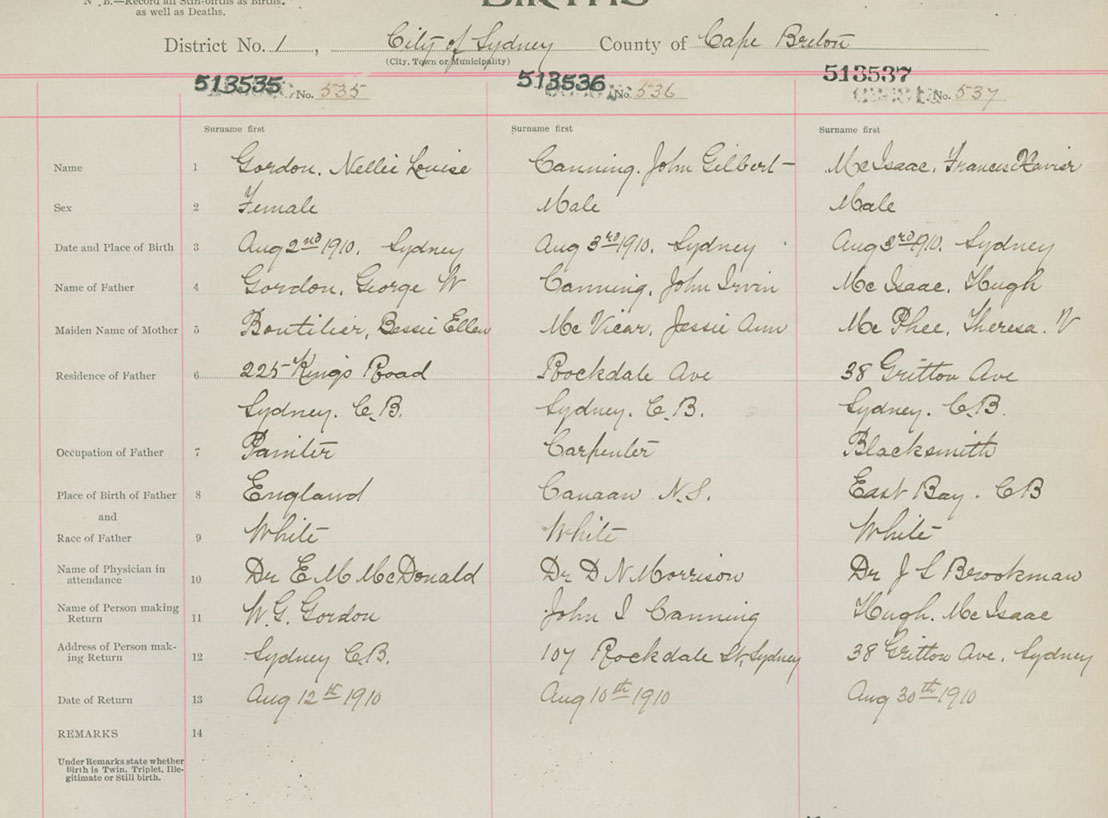 N.B.—Record all Still-births as Births,
as well as Deaths.
BIRTHS
District No. 1, City of Sydney County of Cape Breton
(City, Town or Municipality)
513535 No. 535 513536 No. 536 513537 No. 537
Surname first Surname first Surname first
Name 1 Gordon, Nellie Louise Canning, John Gilbert Mc Isaac, Francis Xavier
Sex 2 Female Male Male
Date and Place of Birth 3 Aug 2nd 1910. Sydney Aug 3rd 1910. Sydney Aug 3rd 1910. Sydney
Name of Father 4 Gordon, George W Canning, John Irvin Mc Isaac, Hugh
Maiden Name of Mother 5 Boutilier, Bessie Ellen Mc Vicar, Jessie Ann Mc Phee, Theresa. V
Residence of Father 6 225 Kings Road Rockdale Ave 38 Gritton Ave
Sydney. C.B. Sydney. C.B. Sydney. C.B.
Occupation of Father 7 Painter Carpenter Blacksmith
Place of Birth of Father 8 England Canaan N.S. East Bay. CB
and
Race of Father 9 White White White
Name of Physician in
attendance 10 Dr E M McDonald Dr D N Morrison Dr J L Brookman
Name of Person making
Return 11 W. G. Gordon John I Canning Hugh. Mc Isaac
Address of Person mak-
ing Return 12 Sydney C.B. 107 Rockdale St, Sydney 38 Gritton Ave, Sydney
Date of Return 13 Aug 12th 1910 Aug 10th 1910 Aug 30th 1910
REMARKS 14
Under Remarks state whether
Birth is Twin, Triplet, Ille-
gitimate or Still birth.